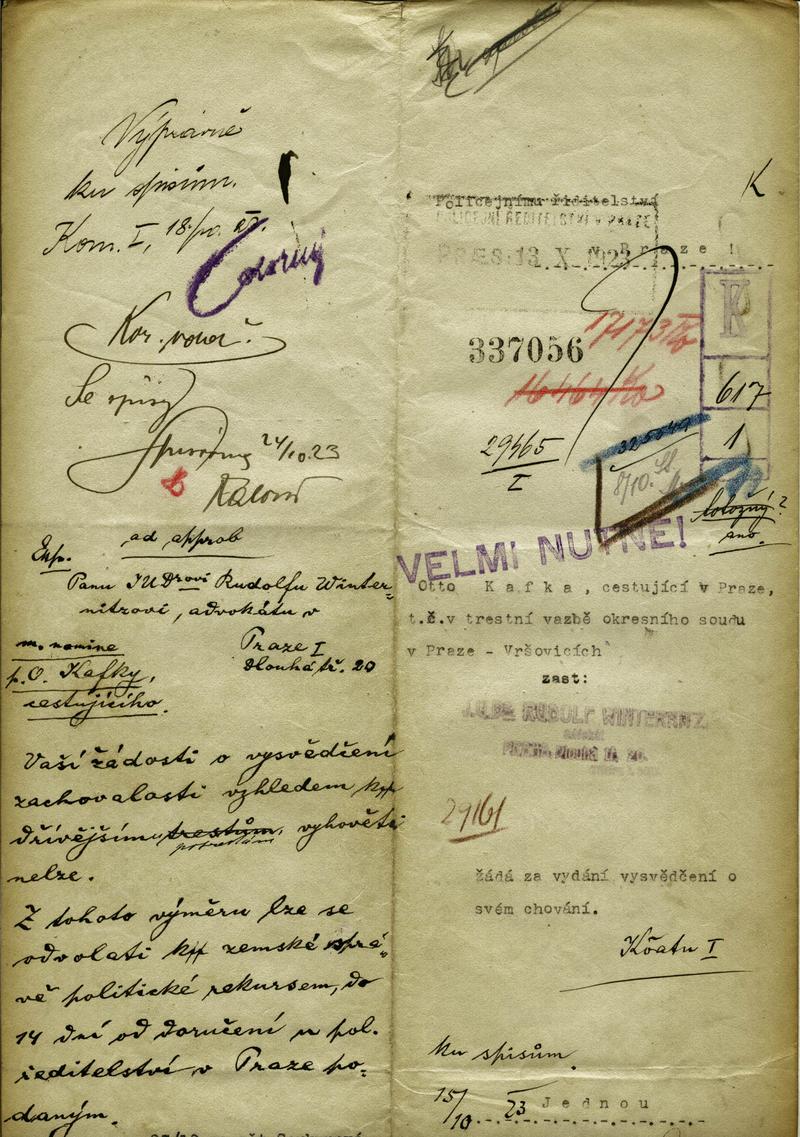 Výpravně
ku spisům.
Kom. I,
Se spisy
24/10.23
ad approb
Exp.
Panu JUDrovi Rudolfu Winter-
nitzovi, advokátu v
Praze I
Dlouhá tř. 20
m. nomine
p. O. Kafky,
cestujícího.
Vaší žádosti o vysvědčení
zachovalosti vzhledem k
dřívějšímu trestům, vyhověti
potrestání
nelze.
Z tohoto výměru lze se
odvolati k zemské sprá-
vě politické rekursem, do
14 dní od doručení u pol.
ředitelství v Praze po-
daným.
K
Policejnímu ředitelství
POLICEJNÍ ŘEDITELSTVÍ V PRAZE
v Praze !
PRAES: 13. X. 1923
K
337056
17173/Ko
16464/Ko
617
29465
I
325049
1
8/10.
totožný?
ano.
VELMI NUTNÉ!
Otto Kafka, cestující v Praze,
t.č.v trestní vazbě okresního soudu
v Praze - Vršovicích
zast:
J.U.DR. RUDOLF WINTERNITZ,
advokát
PRAHA, Dlouhá tř. 20.
29161
žádá za vydání vysvědčení o
svém chování.
ku spisům
15/10 23
Jednou